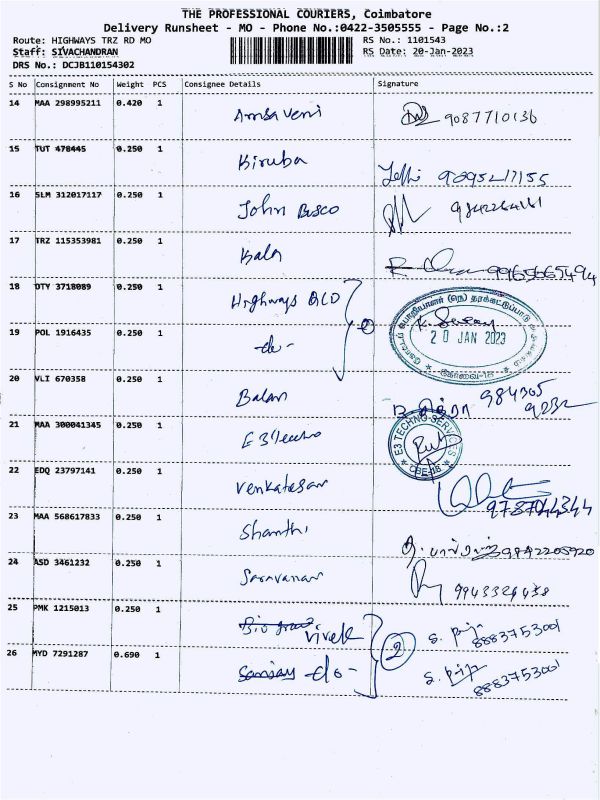 THE PROFESSIONAL COURIERS, Coimbatore
Delivery Runsheet - MO - Phone No.:0422-3505555 - Page No.:2
Route: HIGHWAYS TRZ RD MO RS No.: 1101543
Staff: SIVACHANDRAN RS Date: 20-Jan-2023
DRS No.: DCJB110154302
S No Consignment No Weight PCS Consignee Details Signature
14 MAA 298995211 0.420 1 Amsaveni 9087710136
15 TUT 478445 0.250 1 Kiruba
16 SLM 312017117 0.250 1 John Bosco
17 TRZ 115353981 0.250 1 Kala 9965665494
18 OTY 3718089 0.250 1 Highways
19 POL 1916435 0.250 1 -do- 20 JAN 2023
20 VLI 670358 0.250 1 Balan 984305
9232
21 MAA 300041345 0.250 1 E3 Techno E3 TECHNO SERVICES CBE-18
22 EDQ 23797141 0.250 1 Venkatesan 9787044344
23 MAA 568617833 0.250 1 Shanthi 9842205920
24 ASD 3461232 0.250 1 Saravanan
25 PMK 1215013 0.250 1 Vivek S. Priya
8883753001
26 MYD 7291287 0.690 1 Sanjay -do- 2 S. Priya
8883753001